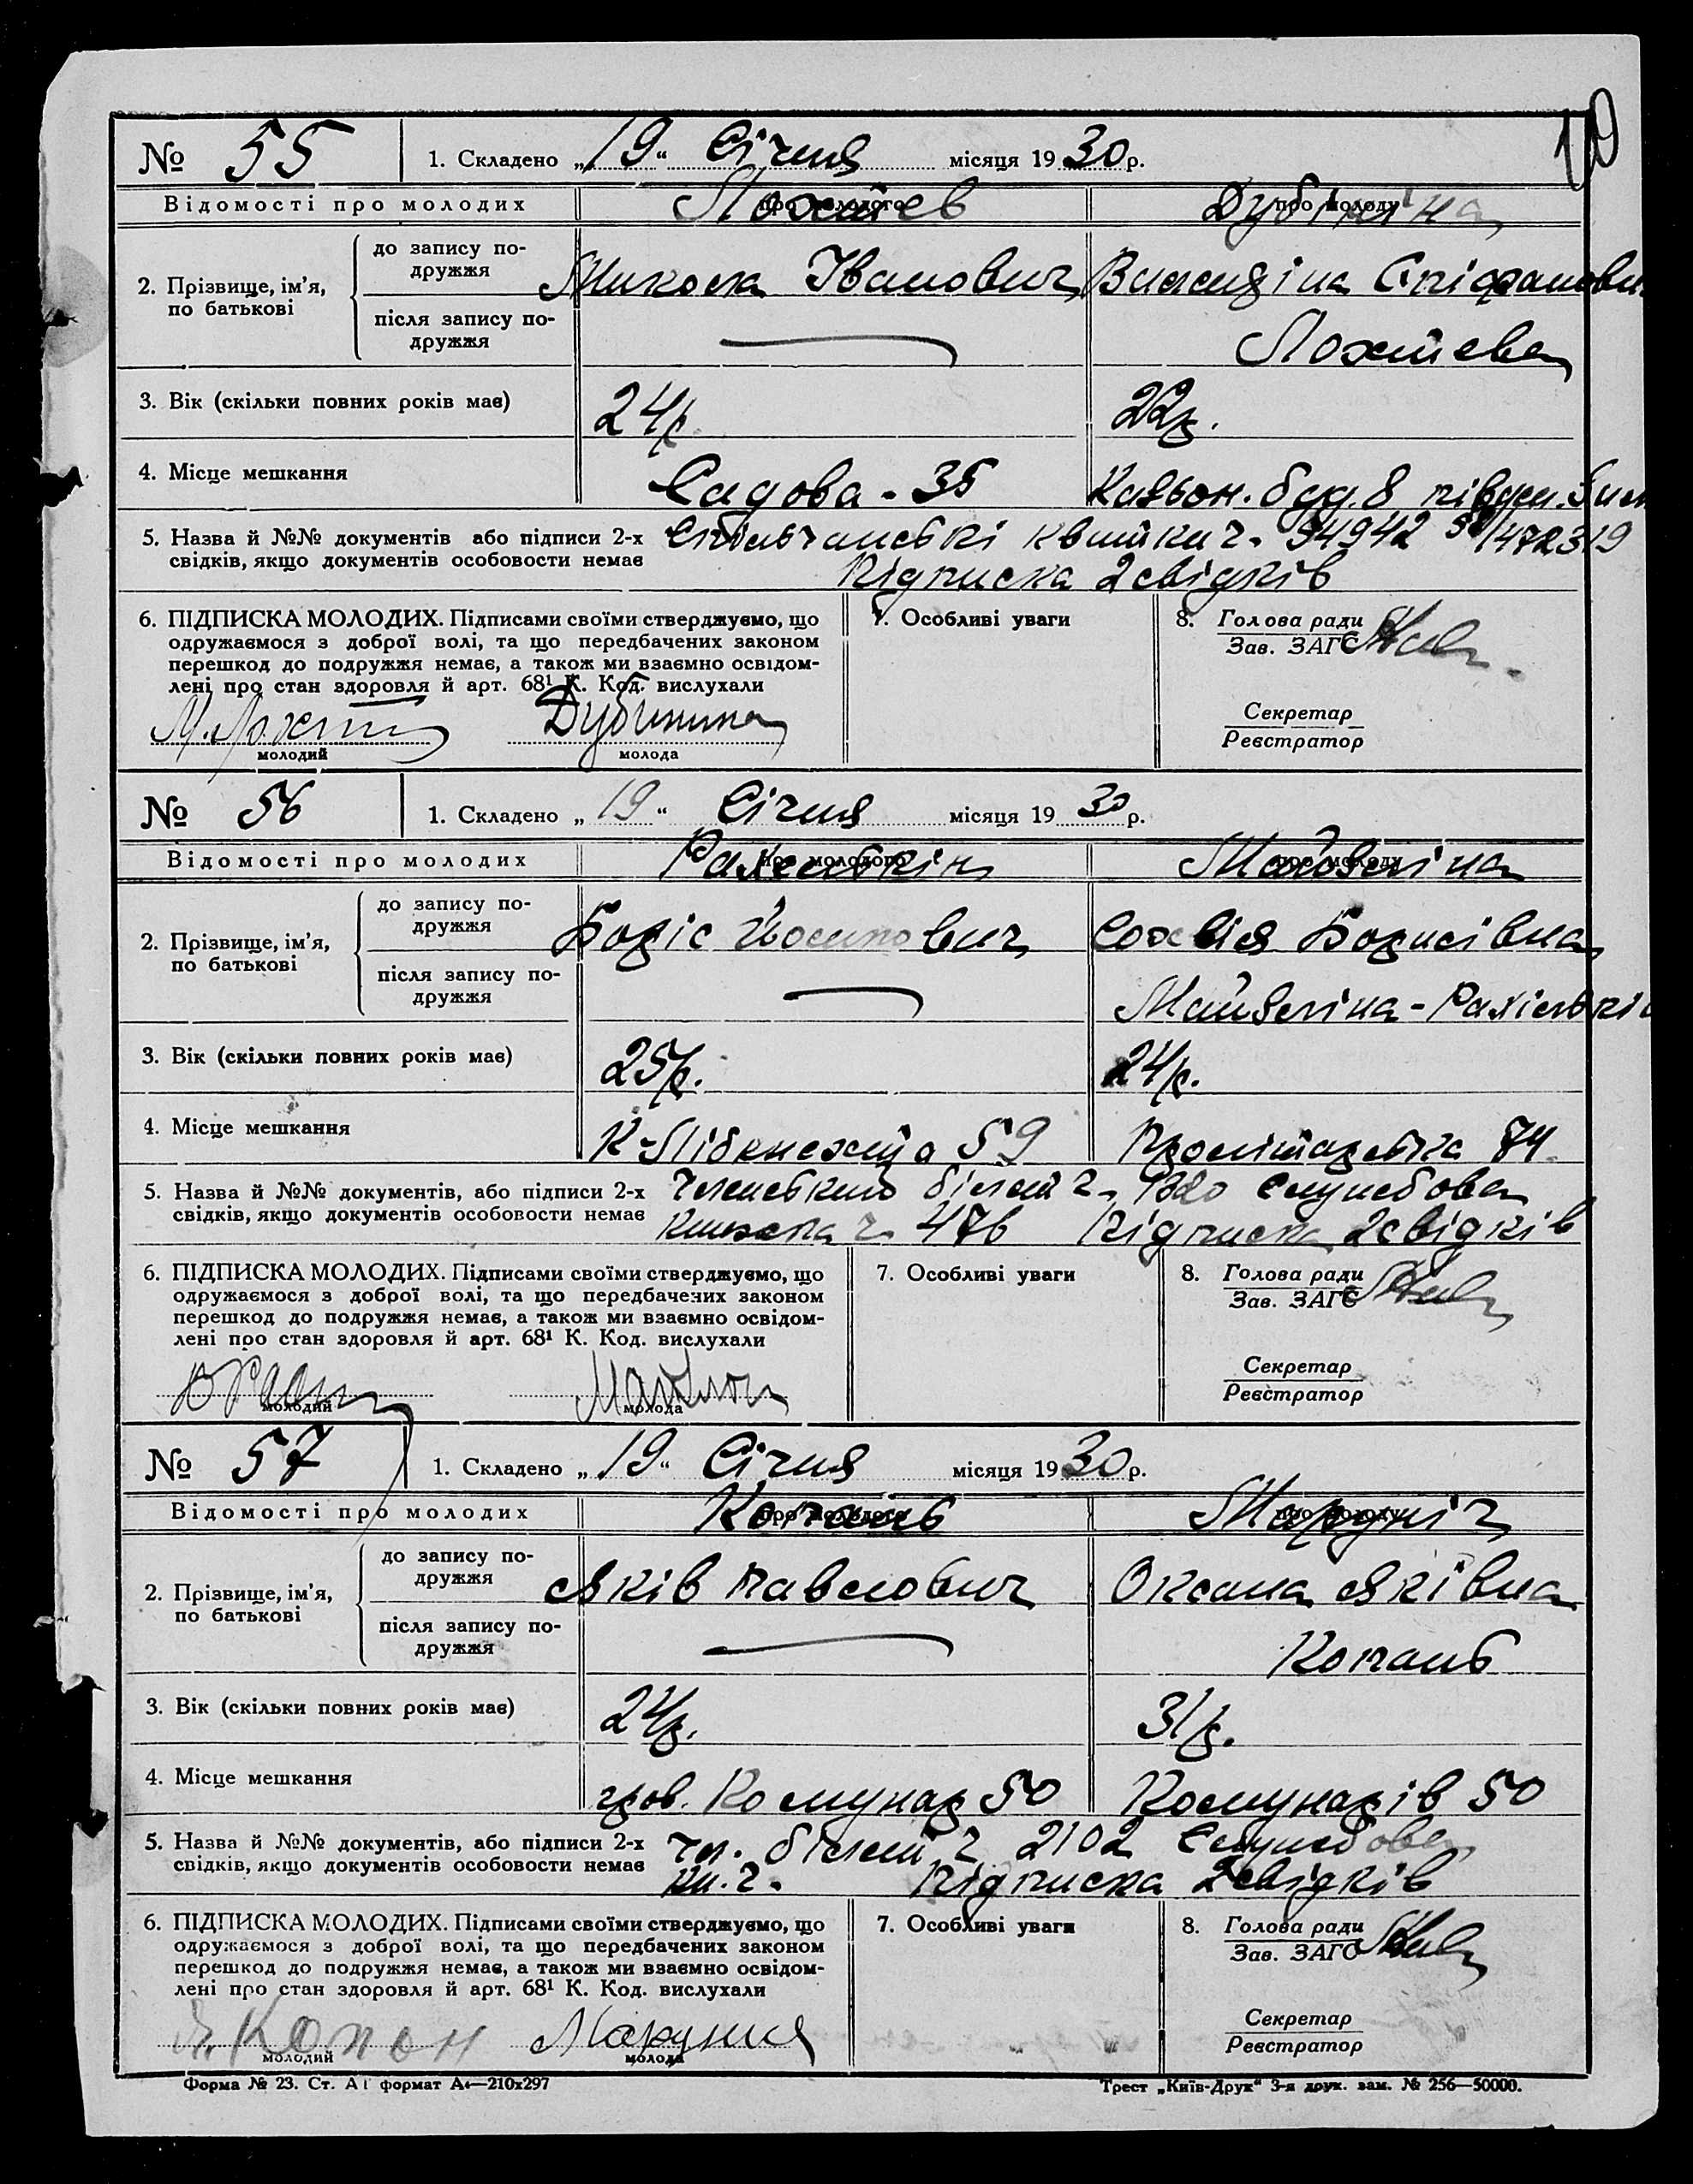 19
№ 55 1. Складено „19“ Січня місяця 1930 р.
Відомості про молодих про молодого про молоду
Дубініна
до запису подружжя
2. Прізвище, ім'я, по батькові Микола Іванович Валендіна Єпіфанови
після запису подружжя
3. Вік (скільки повних років має) 24р. 22р.
4. Місце мешкання Садова - 35 буд. 8
5. Назва й №№ документів або підписи 2-х квитки ч. 94942
свідків, якщо документів особовости немає Підписка 2 свідків
6. ПІДПИСКА МОЛОДИХ. Підписами своїми стверджуємо, що 7. Особливі уваги 8. Голова ради
одружаємося з доброї волі, та що передбачених законом Зав. ЗАГС
перешкод до подружжя немає, а також ми взаємно освідом-
лені про стан здоровля й арт. 68¹ К. Код. вислухали
Секретар
Дубинина Реєстратор
молодий молода
№ 56 1. Складено „19“ Січня місяця 1930 р.
Відомості про молодих про молодого про молоду
до запису подружжя
2. Прізвище, ім'я, по батькові Боріс Йосипович Софія Борисівна
після запису подружжя
3. Вік (скільки повних років має) 25р. 24р.
4. Місце мешкання К-Лібкнехта 59 Пролітарська 74
5. Назва й №№ документів, або підписи 2-х Членський білет ч. 1320 Службова
свідків, якщо документів особовости немає книжка ч. 476 Підписка 2 свідків
6. ПІДПИСКА МОЛОДИХ. Підписами своїми стверджуємо, що 7. Особливі уваги 8. Голова ради
одружаємося з доброї волі, та що передбачених законом Зав. ЗАГС
перешкод до подружжя немає, а також ми взаємно освідом-
лені про стан здоровля й арт. 68¹ К. Код. вислухали
Секретар
Реєстратор
молодий молода
№ 57 1. Складено „19“ Січня місяця 1930 р.
Відомості про молодих про молодого про молоду
Копань Марунич
до запису подружжя
2. Прізвище, ім'я, по батькові Яків Павлович Оксана Яківна
після запису подружжя Копань
3. Вік (скільки повних років має) 24р. 31р.
4. Місце мешкання пров. Комунар 50 Комунарів 50
5. Назва й №№ документів, або підписи 2-х Чл. білет ч 2102 Службова
свідків, якщо документів особовости немає кн. ч. Підписка 2 свідків
6. ПІДПИСКА МОЛОДИХ. Підписами своїми стверджуємо, що 7. Особливі уваги 8. Голова ради
одружаємося з доброї волі, та що передбачених законом Зав. ЗАГС
перешкод до подружжя немає, а також ми взаємно освідом-
лені про стан здоровля й арт. 68¹ К. Код. вислухали
Секретар
Я. Копон Реєстратор
молодий молода
Форма № 23. Ст. А1 формат А4—210х297 Трест „Київ-Друк“ 3-я друк. зам. № 256—50000.